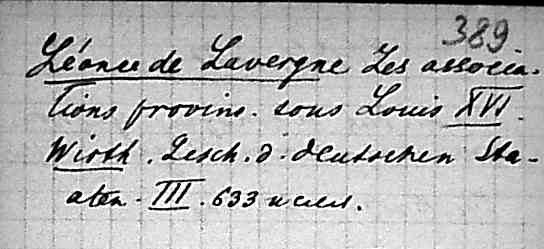 389
Léonce de Lavergne Les associa-
tions provinc. sous Louis XVI.
Wirth. Gesch. d. deutschen Sta-
aten. III. 633 и слѣд.